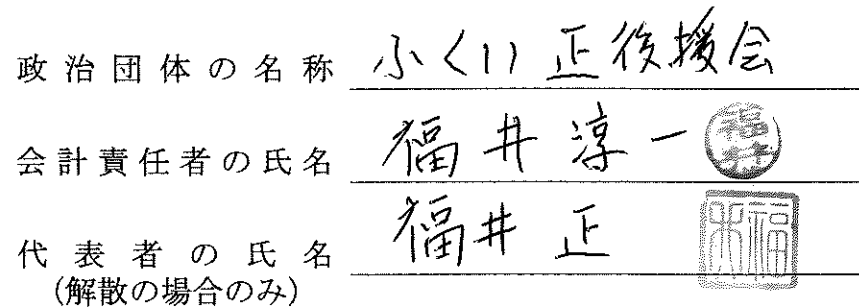 政治団体の名称 ふくい正後援会
会計責任者の氏名 福井淳一
代表者の氏名 福井正
(解散の場合のみ)